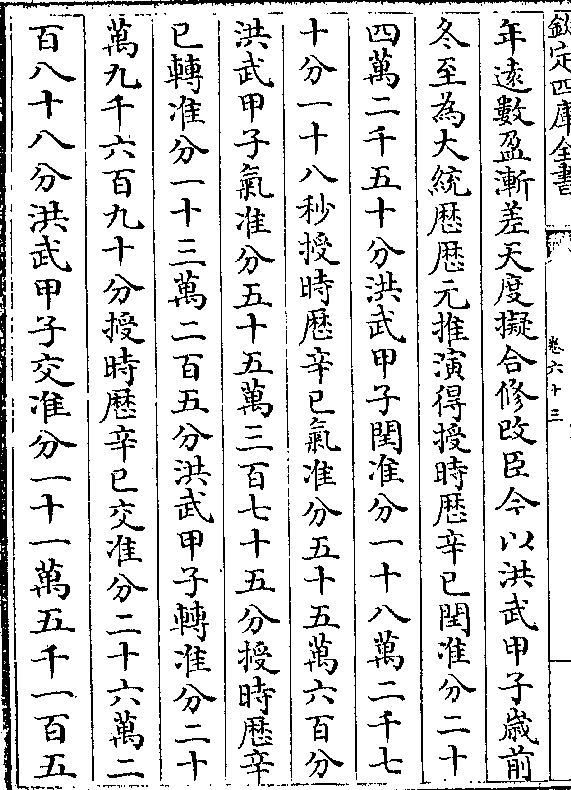 欽定四庫全書
卷六十三
年遠數盈漸差天度擬合修改臣今以洪武甲子歲前
冬至為大統歴歴元推演得授時歴辛巳閏准分二十
四萬二千五十分洪武甲子閏准分一十八萬二千七
十分一十八秒授時歴辛巳氣准分五十五萬六百分
洪武甲子氣准分五十五萬三百七十五分授時歴辛
巳轉准分一十三萬二百五分洪武甲子轉准分二十
萬九千六百九十分授時歴辛巳交准分二十六萬二
百八十八分洪武甲子交准分一十一萬五千一百五